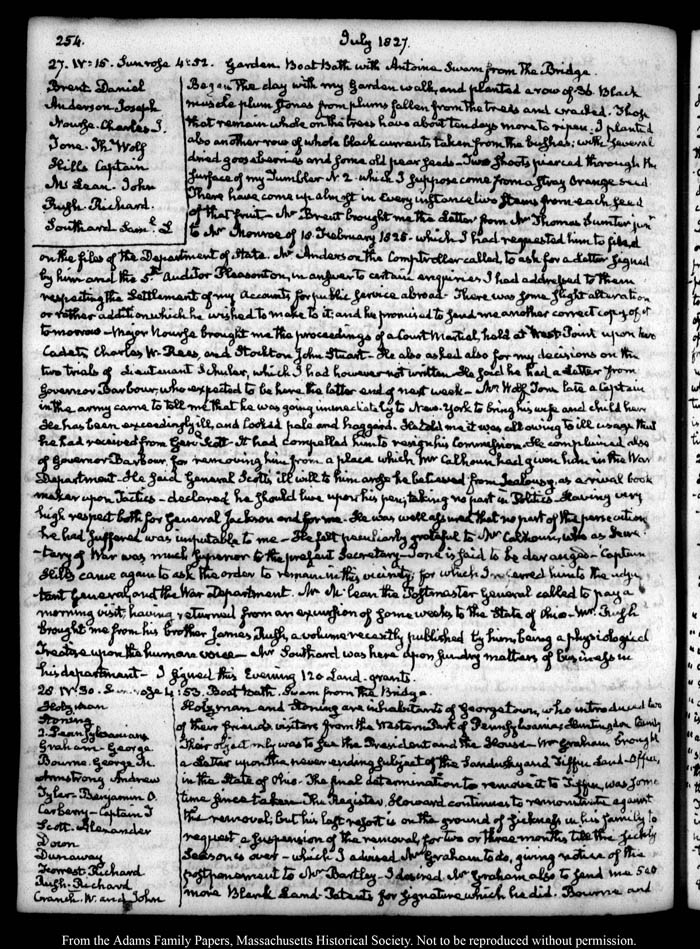 254.
July 1827.
27. IV:15. Sun rose 4:52. Garden Boat Bath with Antoine Swam from the Bridge.
Brent Daniel
Anderson Joseph
Nourse. Charles J.
Tone. Th. Wolf
Hills Captain
McLean. John
Rush. Richard.
Southard Sam.l L
Began the day with my Garden walk, and planted a row of 36 Black
muscle plum stones from plums fallen from the trees and cracked. Those
that remain whole on the trees have about ten days more to ripen. I planted
also another row of whole black currants taken from the bushes; with several
dried gooseberries and some old pear seeds- Two shoots pierced through the
surface of my Tumbler N. 2 which I suppose come from a stray Orange seed
There have come up almost in every instance two stems from each seed
of that fruit- Mr Brent brought me the Letter from Mr Thomas Sumter junr
to Mr Monroe of 10 February 1825. which I had requested him to find
on the files of the Department of State. Mr Anderson the Comptroller called, to ask for a Letter signed
by him and the 5th Auditor Pleasonton, in answer to certain enquiries I had addressed to them
respecting the Settlement of my Accounts for public service abroad- There was some slight alteration
or rather addition which he wished to make to it; and he promised to send me another correct copy of it
tomorrow- Major Nourse brought me the proceedings of a Court Martial, held at West Point upon two
Cadets, Charles W. Rees, and Stockton John Stuart- He also asked also for my decisions on the
two trials of Lieutenant Schuler, which I had however not written. He said he had a Letter from
Governor Barbour, who expected to be here the latter end of next week- Mr Wolf Tone late a Captain
in the army came to tell me that he was going immediately to New-York to bring his wife and child here
He has been exceedingly ill, and looked pale and haggard. He told me it was all owing to ill usage that
he had received from Genl Scott- It had compelled him to resign his Commission. He complained also
of Governor Barbour, for removing him from a place which Mr Calhoun had given him in the War
Department- He said General Scott's ill will to him arose he believed from Jealousy, as a rival book
maker upon Tactics- declared he should live upon his pen, taking no part in Politics- Having very
high respect both for General Jackson and for me. He was well assured that no part of the persecution
he had suffered was imputable to me- He felt peculiarly grateful to Mr Calhoun, who as Secre-
-tary of War was much superior to the present Secretary- Tone is said to be deranged- Captain
Hills came again to ask the order to remain in this vicinity; for which I referred him to the Adju-
tant General, and the War Department. Mr McLean the Postmaster General called to pay a
morning visit, having returned from an excursion of some weeks to the State of Ohio- Mr. Rush
brought me from his brother James Rush, a volume recently published by him, being a physiological
Treatise upon the human voice- Mr Southard was here upon sundry matters of business in
his department- I signed this Evening 120 Land-grants.
28. IV:30. Sun rose 4:53. Boat Bath. Swam from the Bridge.
Holtzman
Stoning
2. Pennsylvanians
Graham- George
Bourne- George M.
Armstrong Andrew
Tyler. Benjamin O.
Carberry- Captain T
Scott. Alexander
Down
Dunaway
Forrest Richard
Rush. Richard
Cranch. W. and John
Holtzman and Stoning are inhabitants of Georgetown, who introduced two
of their friends visitors from the Western Part of Pennsylvania, Huntingdon County
Their object only was to see the President and the House- Mr Graham brought
a Letter upon the never ending subject of the Sandusky and Tiffin Land-Office,
in the State of Ohio. The final determination to remove it to Tiffin, was some
time since taken- The Register, Howard continues to remonstrate against
the removal, but his last resort is on the ground of sickness in his family, to
request a suspension of the removal, for two or three months till the sickly
season is over- which I advised Mr Graham to do, giving notice of this
postponement to Mr Bartley- I desired Mr Graham also to send me 500
more Blank Land-Patents for signature which he did. Bourne and
From the Adams Family Papers, Massachusetts Historical Society. Not to be reproduced without permission.